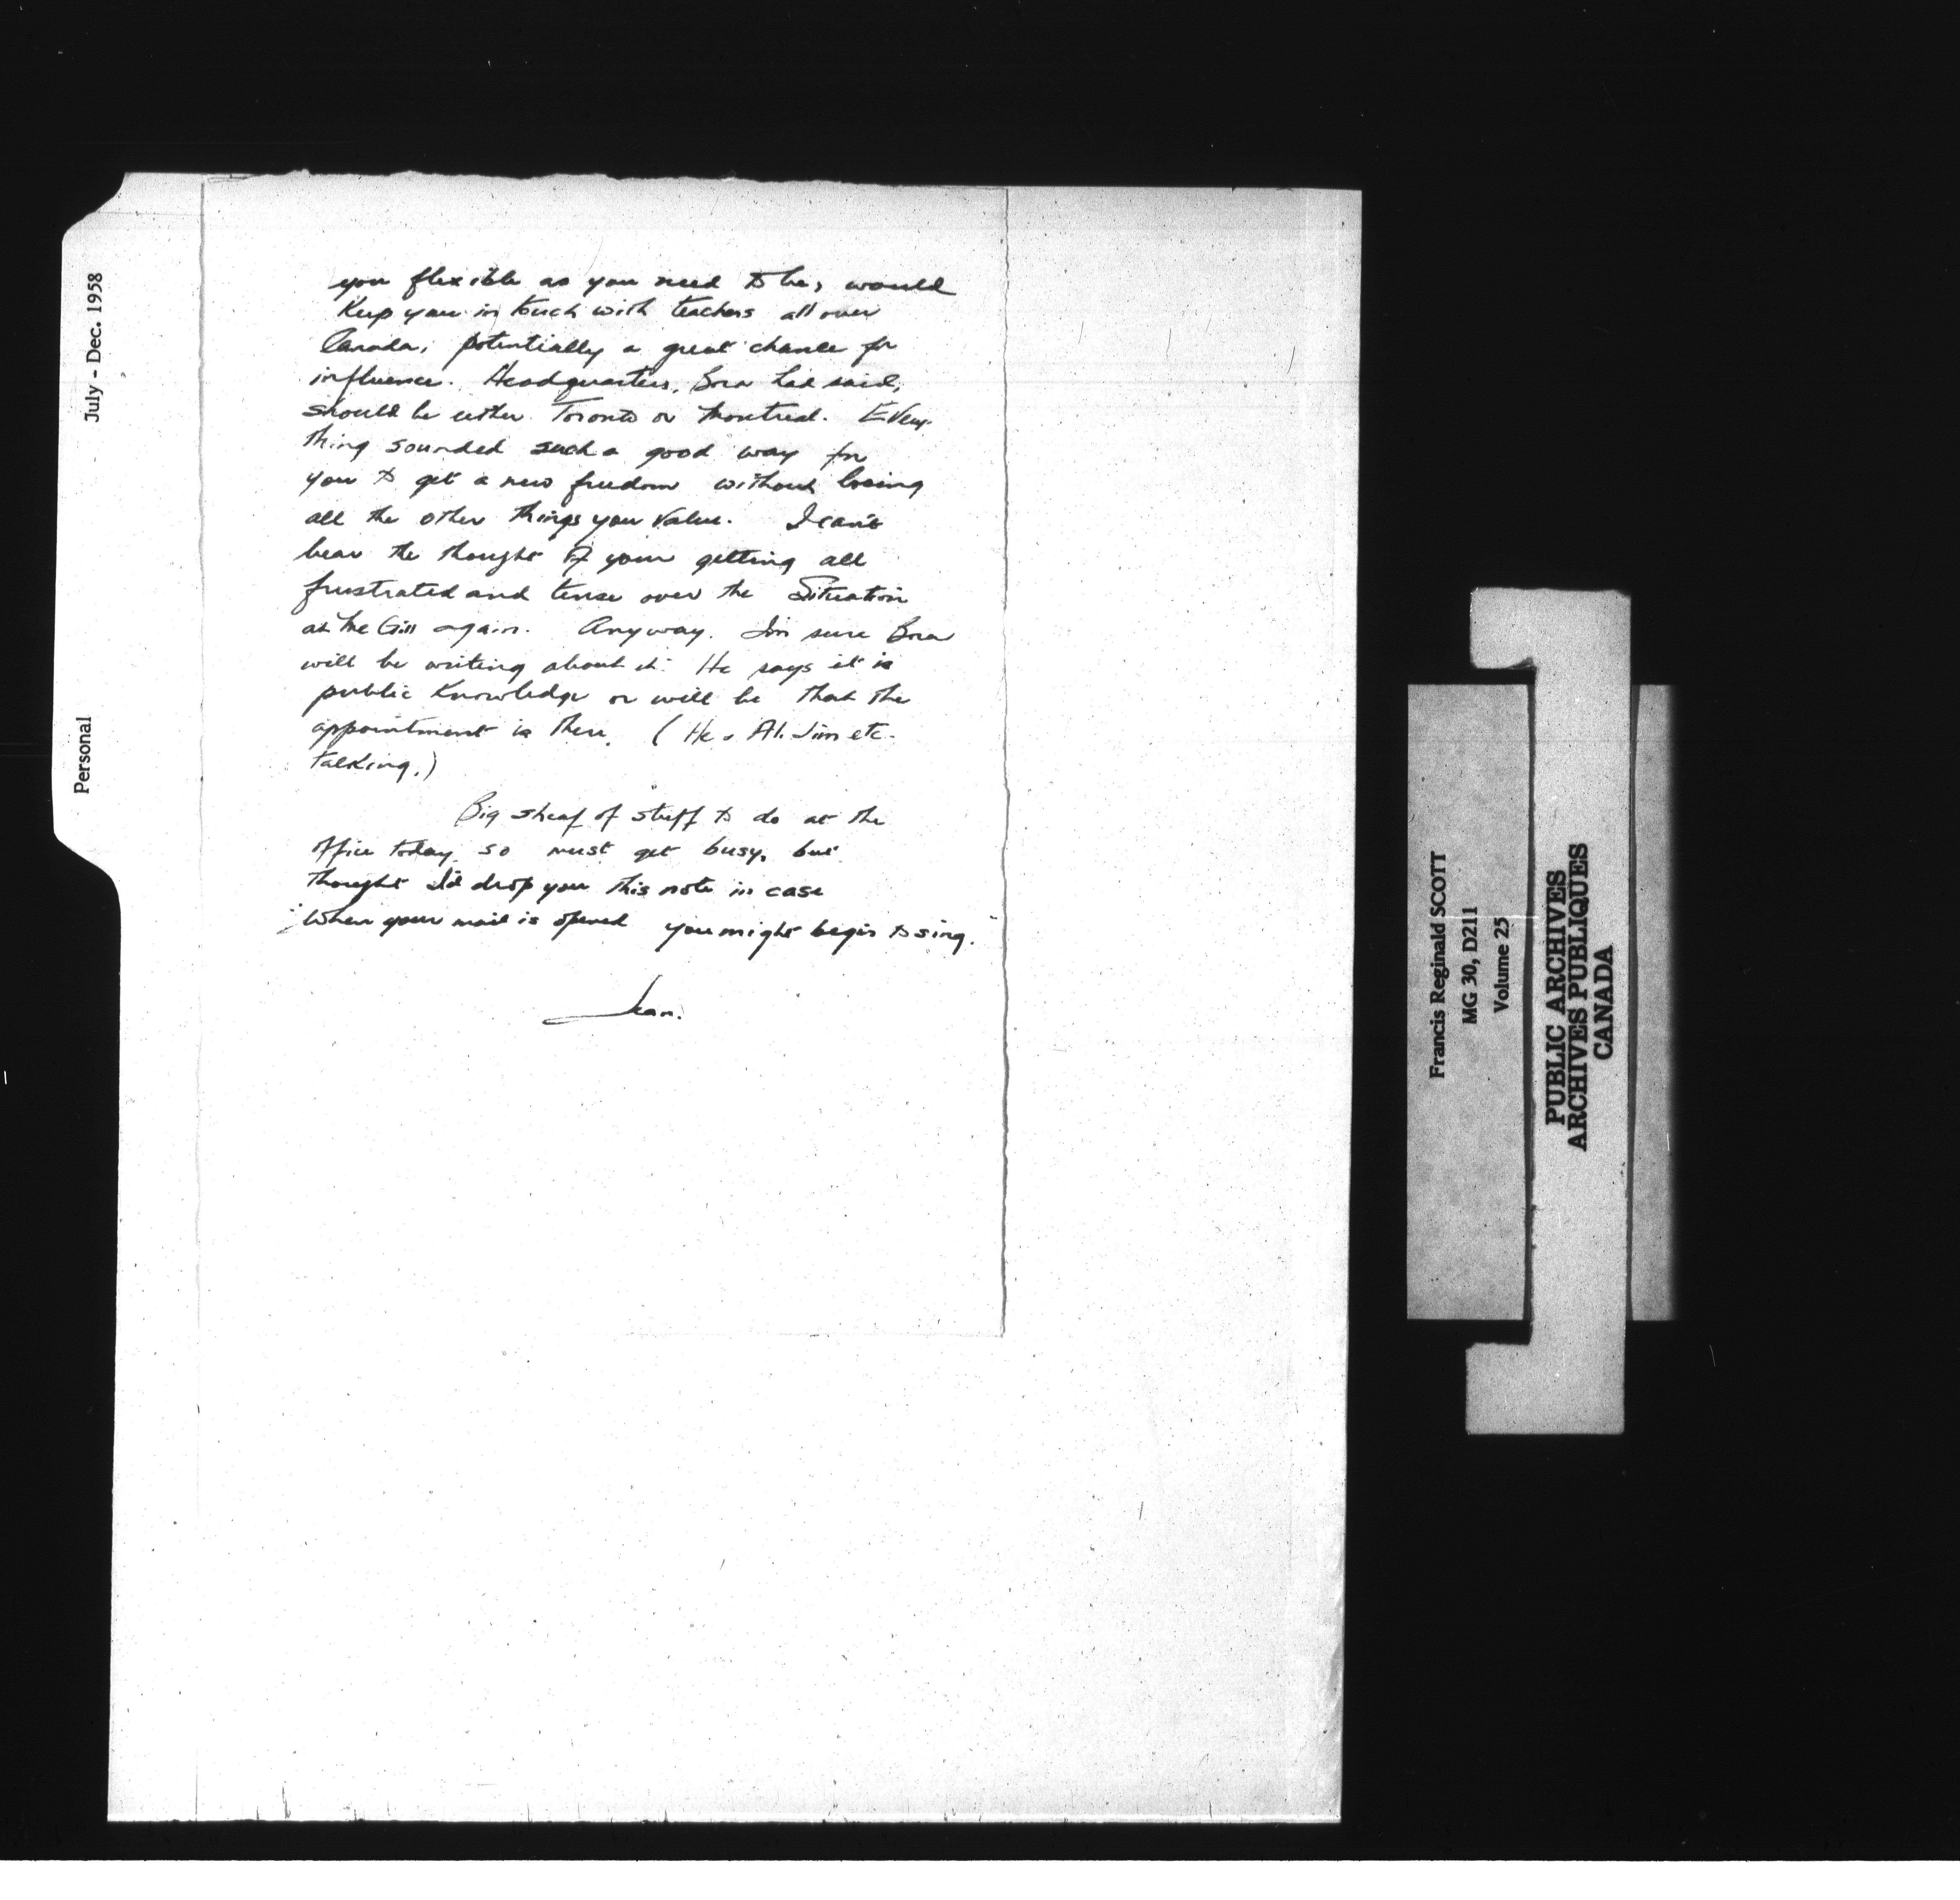 July - Dec. 1958
Personal
you flexible as you need to be, would
Keep you in touch with teachers all over
Canada; potentially a great chance for
influence. Headquarters, Bora had said,
should be either Toronto or Montreal. Every-
thing sounded such a good way for
you to get a new freedom without losing
all the other things you value. I can't
bear the thought of your getting all
frustrated and tense over the Situation
at McGill again. Anyway. I'm sure Bora
will be writing about it. He says it is
public Knowledge or will be that the
appointment is there. (He & Al. Jim etc.
talking.)
Big sheaf of stuff to do at the
office today so must get busy, but
thought I'd drop you this note in case
when your mail is opened you might begin to sing.
Jean.
Francis Reginald SCOTT
MG 30, D211
Volume 25
PUBLIC ARCHIVES
ARCHIVES PUBLIQUES
CANADA